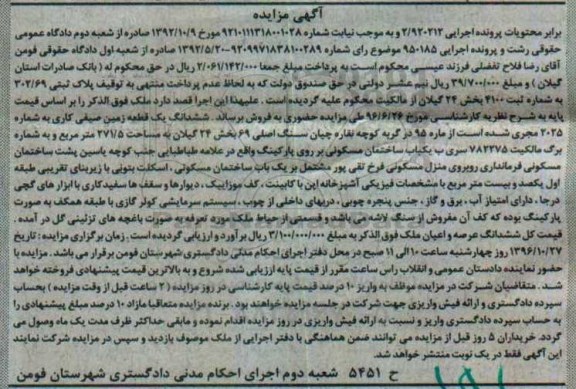 آگهی مزایده
برابر محتویات پرونده اجرایی ۲/۹۲۰۲۱۲ و به موجب نیابت شماره ۹۲۱۰۱۱۱۳۱۸۰۰۱۰۲۸ مورخ ۱۳۹۲/۱۰/۹ صادره از شعبه دوم دادگاه عمومی
حقوقی رشت و پرونده اجرایی ۹۵۰۱۸۵ موضوع رای شماره ۹۲۰۹۹۷۱۸۳۸۱۰۰۳۸۹-۱۳۹۲/۵/۲۰ صادره از شعبه اول دادگاه حقوقی فومن
آقای رضا فلاح تفضلی فرزند عیسی محکوم است به پرداخت مبلغ جمعا ۲/۰۶۱/۱۴۲/۰۰۰ ریال در حق محکوم له ( بانک صادرات استان
گیلان ) و مبلغ ۳۹/۷۰۰/۰۰۰ ریال نیم عشر دولتی در حق صندوق دولت که به لحاظ عدم پرداخت منتهی به توقیف پلاک ثبتی ۳۰۲/۶۹
به شماره ثبت ۴۱۰۰ بخش ۲۴ گیلان از مالکیت محکوم علیه گردیده است . علیهذا این اجرا قصد دارد ملک فوق الذکر را بر اساس قیمت
پایه به شرح نظریه کارشناسی مورخ ۹۶/۶/۲۶ طی مزایده حضوری به فروش برساند. ششدانگ یک قطعه زمین صیفی کاری به شماره
۲۰۲۵ مجری شده است از ماره ۹۵ در گربه کوچه نقاره چیان سنگ اصلی ۶۹ بخش ۲۴ گیلان به مساحت ۲۷۱/۵ متر مربع و به شماره
برگ مالکیت ۷۸۲۳۷۵ سری ب یکباب ساختمان مسکونی بر روی پارکینگ واقع در علامه طباطبایی جنب کوچه یاسین پشت ساختمان
مسکونی فرمانداری روبروی منزل مسکونی فرخ تقی پور مشتمل بر یک باب ساختمان مسکونی . اسکلت بتونی با زیربنای تقریبی طبقه
اول یکصد و بیست متر مربع با مشخصات فیزیکی آشپزخانه اپن با کابینت ، کف موزاییک ، دیوارها و سقف ها سفیدکاری با ابزار های گچی
درجا ، دارای امتیاز آب ، برق و گاز ، جنس پنجره چوبی ، دربهای داخلی از چوب ، سیستم سرمایشی کولر گازی با طبقه همکف به صورت
پارکینگ بوده که کف آن مفروش از سنگ لاشه می باشد و قسمتی از حیاط ملک مورد تعرفه به صورت باغچه های تزئینی گل در آمده .
قیمت کل ششدانگ عرصه و اعیان ملک فوق الذکر به مبلغ ۳/۱۰۰/۰۰۰/۰۰۰ ریال برآورد و ارزیابی گردیده است . زمان برگزاری مزایده : تاریخ
۱۳۹۶/۱۰/۲۷ روز چهارشنبه ساعت ۱۰ الی ۱۱ صبح در محل دفتر اجرای احکام مدنی دادگستری شهرستان فومن برقرار می باشد . مزایده با
حضور نماینده دادستان عمومی و انقلاب راس ساعت مقرر از قیمت پایه ارزیابی شده شروع و به بالاترین قیمت پیشنهادی فروخته خواهد
شد. متقاضیان شرکت در مزایده موظف به واریز ۱۰ درصد قیمت پایه کارشناسی در روز مزایده ( ۲ ساعت قبل از وقت مزایده ) بحساب
سپرده دادگستری و ارائه فیش واریزی جهت شرکت در جلسه مزایده خواهند بود . برنده مزایده متعاقبا مازاد ۱۰ درصد مبلغ پیشنهادی را
به حساب سپرده دادگستری واریز و نسبت به ارائه فیش واریزی در روز مزایده اقدام نموده و مابقی حداکثر ظرف مدت یک ماه وصول می
گردد. خریداران ۵ روز قبل از مزایده می توانند ضمن هماهنگی با دفتر اجرایی از ملک موصوف بازدید و سپس در مزایده شرکت نمایند
این آگهی فقط در یک نوبت منتشر خواهد شد.
ح ۵۴۵۱ شعبه دوم اجرای احکام مدنی دادگستری شهرستان فومن